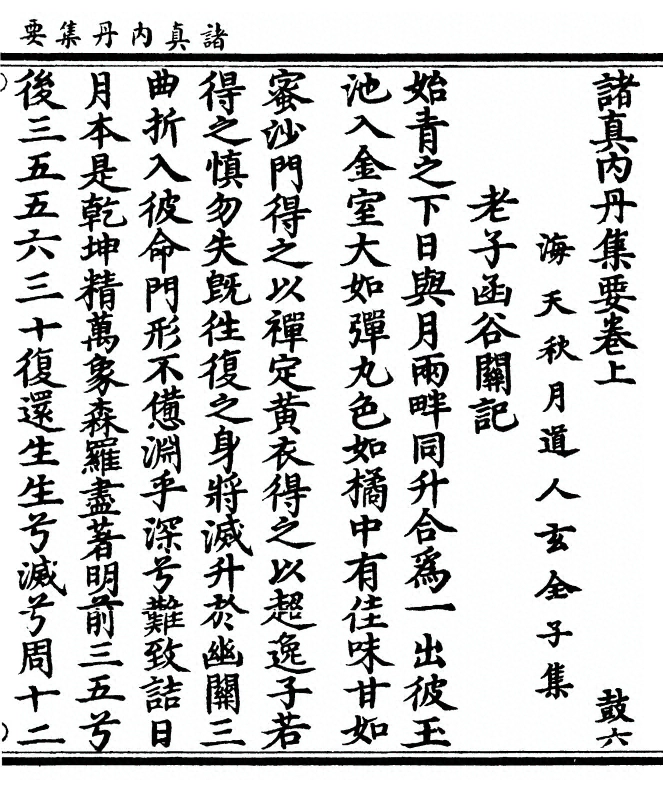 諸真内丹集要
諸真内丹集要卷上
鼓六
海天秋月道人玄全子集
老子函谷關記
始青之下日與月兩畔同升合為一出彼玉
池入金室大如彈丸色如橘中有佳味甘如
蜜沙門得之以禪定黃衣得之以超逸子若
得之慎勿失旣往復之身將滅升於幽關三
曲折入彼命門形不憊淵乎深兮難致詰日
月本是乾坤精萬象森羅盡著明前三五兮
後三五五六三十復還生生兮滅兮周十二